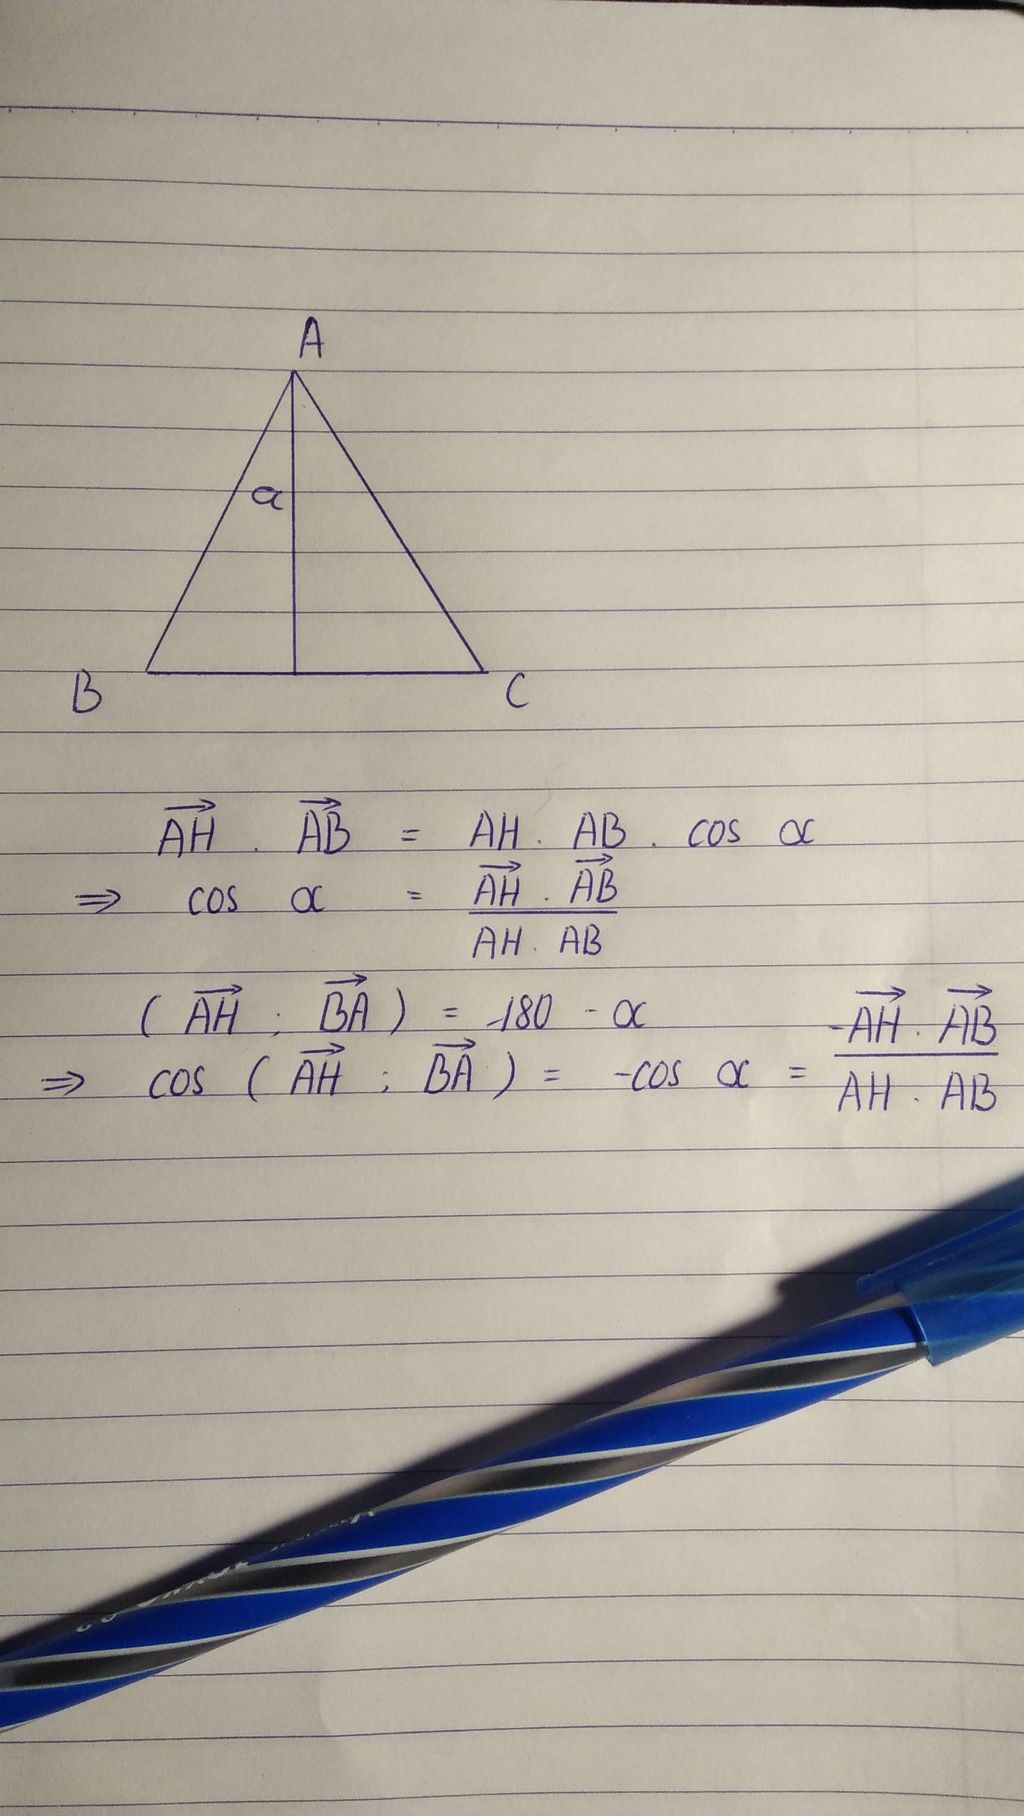 A
α
B
C
$\overrightarrow{AH} . \overrightarrow{AB} = AH . AB . cos α$
$\Rightarrow cos α = \frac{\overrightarrow{AH} . \overrightarrow{AB}}{AH . AB}$
$(\overrightarrow{AH} ; \overrightarrow{BA}) = 180 - α$
$\Rightarrow cos (\overrightarrow{AH} ; \overrightarrow{BA}) = -cos α = \frac{-\overrightarrow{AH} . \overrightarrow{AB}}{AH . AB}$